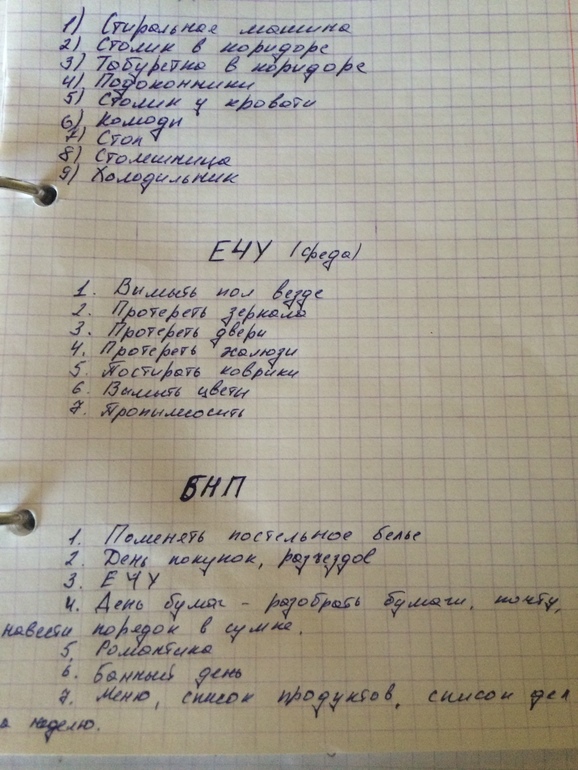 1) Стиральная машина
2) Столик в коридоре
3) Табуретка в коридоре
4) Подоконники
5) Столик у кровати
6) Комоды
7) Стол
8) Столешница
9) Холодильник
ЕЧУ (среда)
1. Вымыть пол везде
2. Протереть зеркала
3. Протереть двери
4. Протереть жалюзи
5. Постирать коврики
6. Вымыть цветы
7. Пропылесосить
БНП
1. Поменять постельное белье
2. День покупок, разъездов
3. ЕЧУ
4. День бумаг - разобрать бумаги, почту,
навести порядок в сумке.
5. Романтика
6. Банный день
7. Меню, список продуктов, список дел
а неделю.